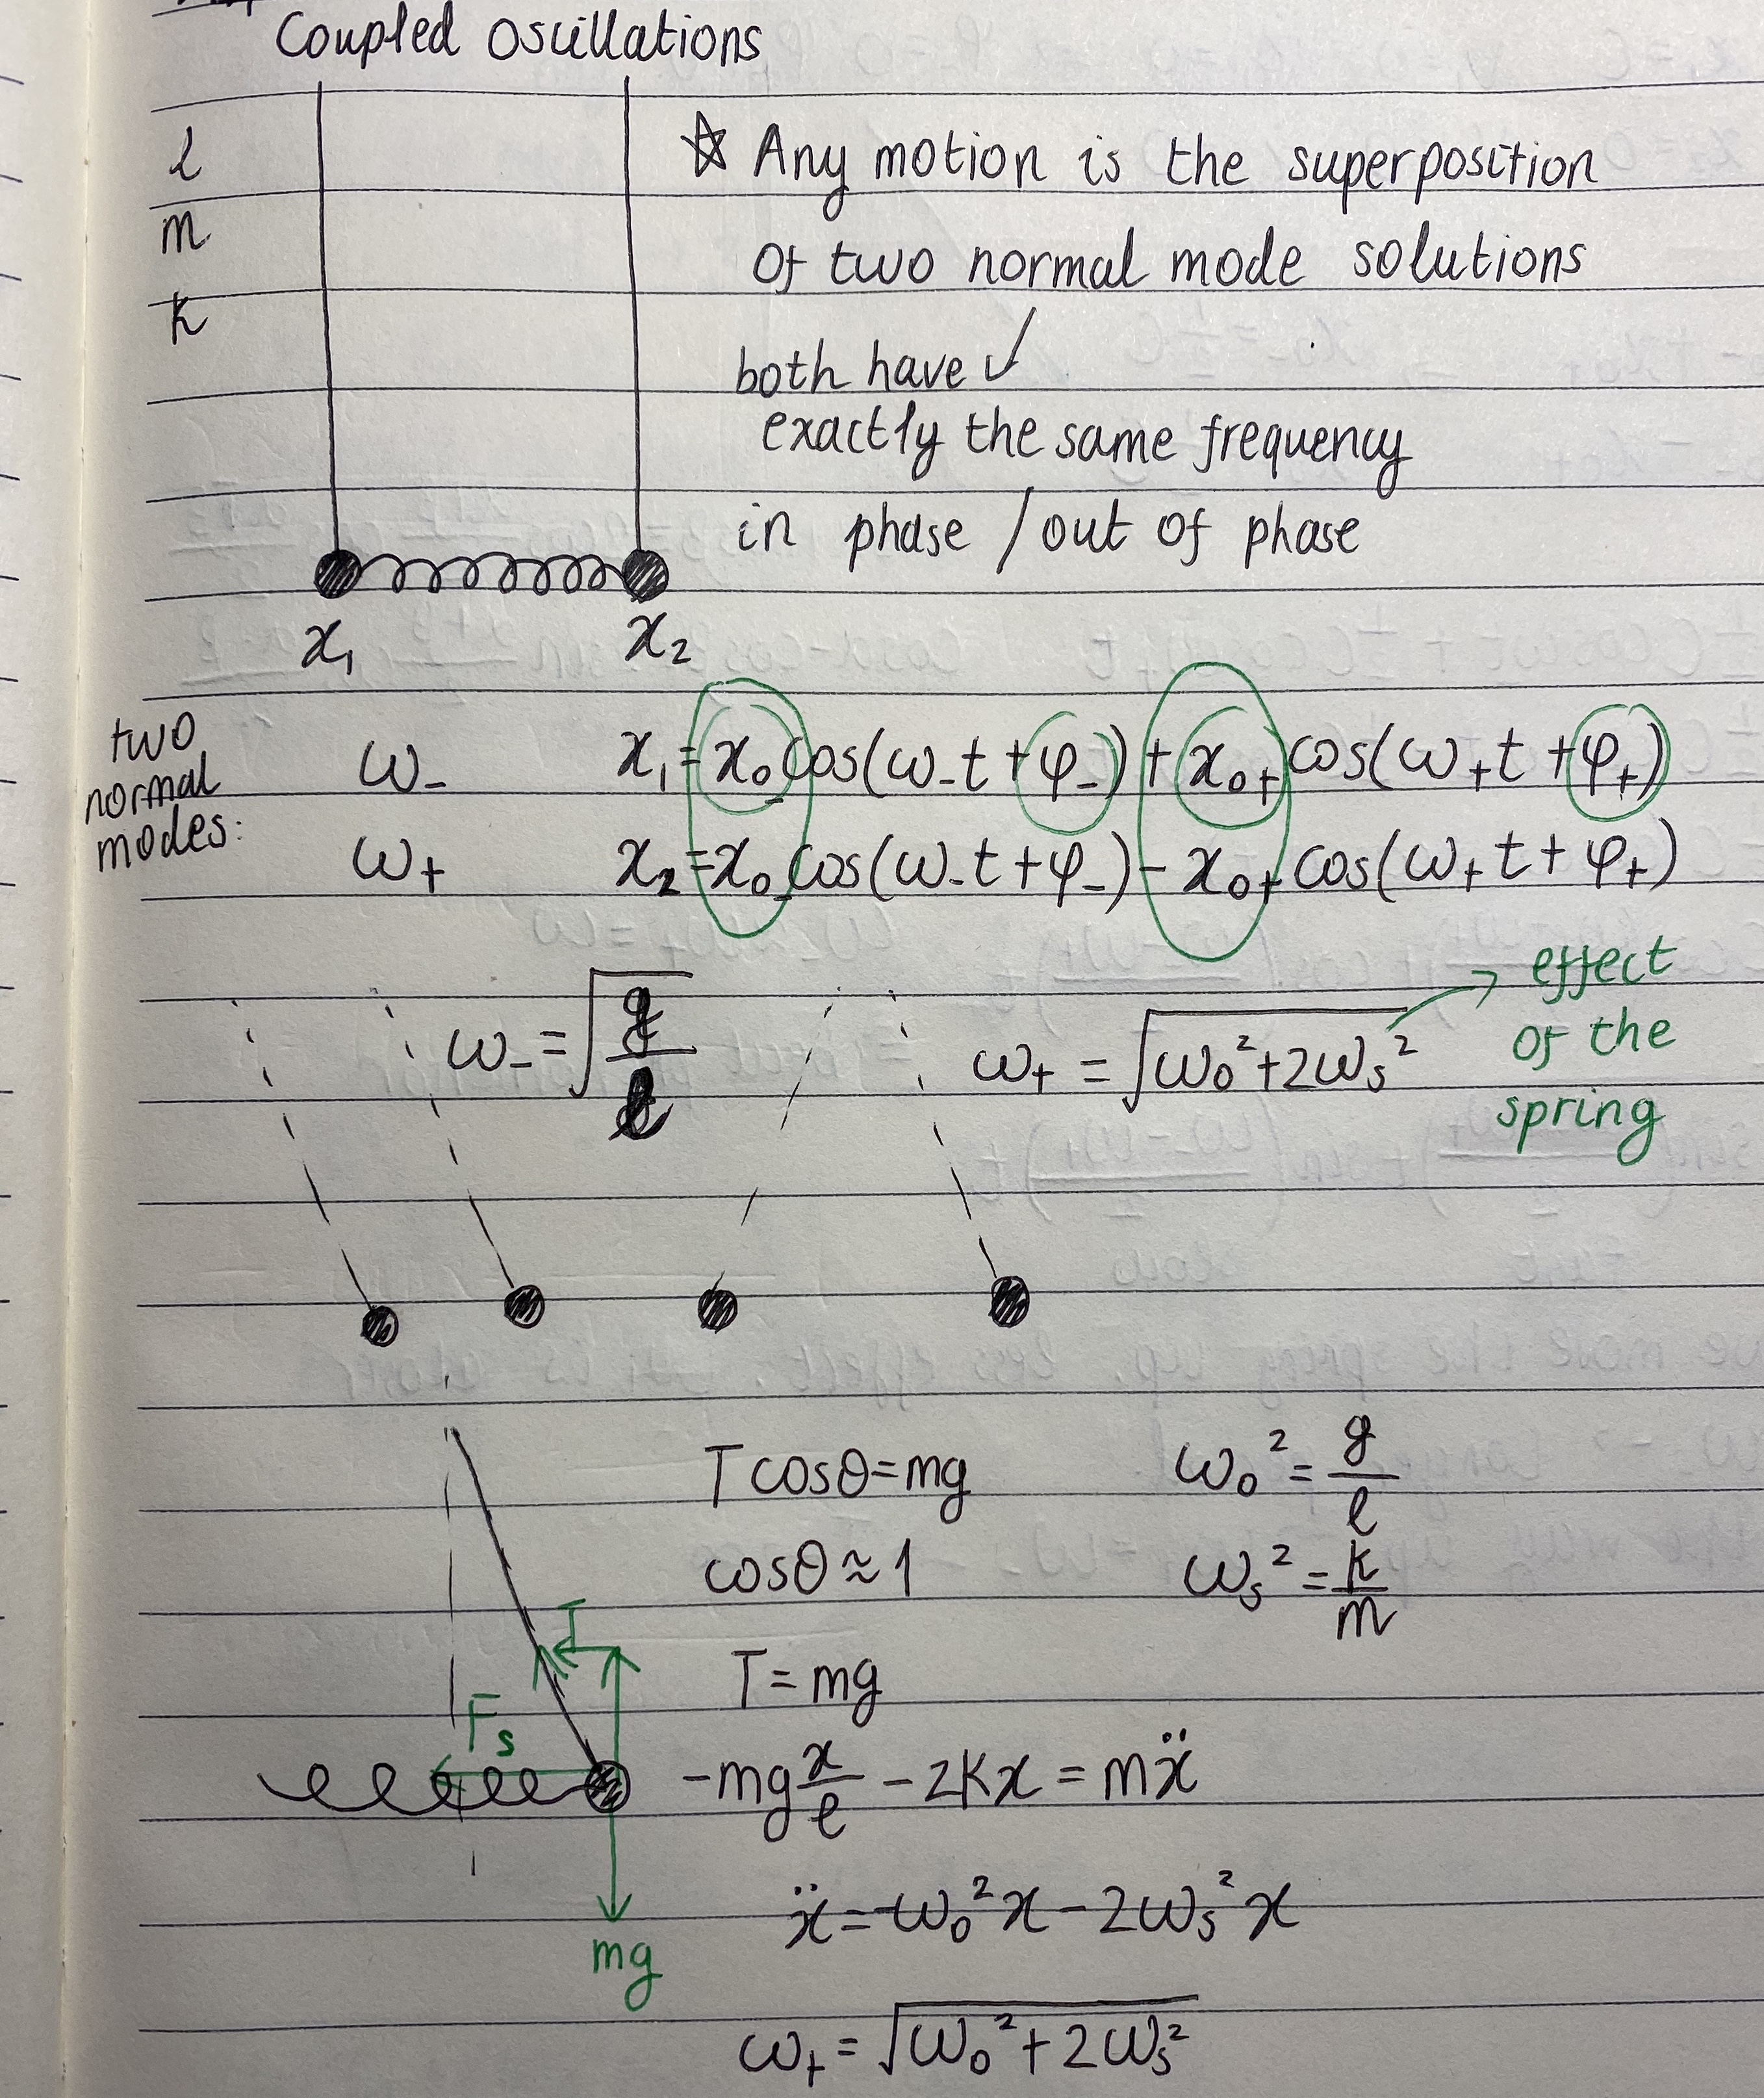 Coupled oscillations
l
m
k
☆ Any motion is the superposition
of two normal mode solutions
both have ✓
exactly the same frequency
in phase / out of phase
x₁ x₂
two normal modes:
ω₋ x₁ = x₀₋ cos(ω₋t + φ₋) + x₀₊ cos(ω₊t + φ₊)
ω₊ x₂ = x₀₋ cos(ω₋t + φ₋) - x₀₊ cos(ω₊t + φ₊)
ω₋ = √(g/l) ω₊ = √(ω₀² + 2ωₛ²) → effect
of the
spring
T cosθ = mg ω₀² = g/l
cosθ ≈ 1 ωₛ² = k/m
T
T = mg
Fₛ
-mg x/l - 2kx = mẍ
ẍ = -ω₀²x - 2ωₛ²x
mg
ω₊ = √(ω₀² + 2ωₛ²)